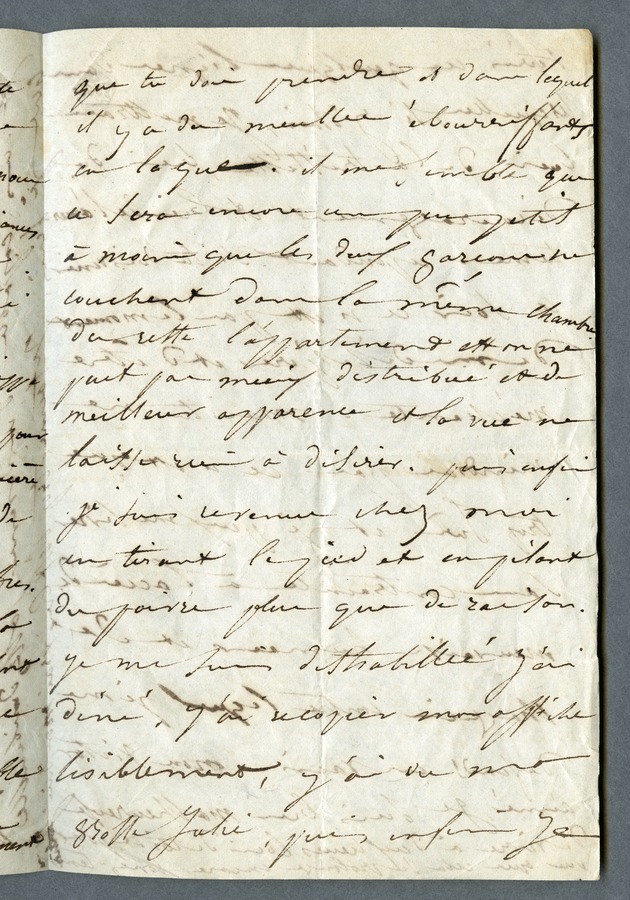 que tu dois prendre et dans lequel
il y a des meubles ébouriffants
en laque. il me semble que
ce sera encore un peu petit
à moins que les deux garçons ne
couchent dans la même chambre
du reste l'appartement est on ne
peut pas mieux distribué et de
meilleur apparence et la vue ne
laisse rien à désirer. puis enfin
je suis revenue chez moi
en tirant le pied et en pilant
du poivre plus que de raison.
je me suis déshabillée j'ai
diné, j'ai recopier mon affiche
lisiblement, j'ai vu ma
Julie, puis enfin je